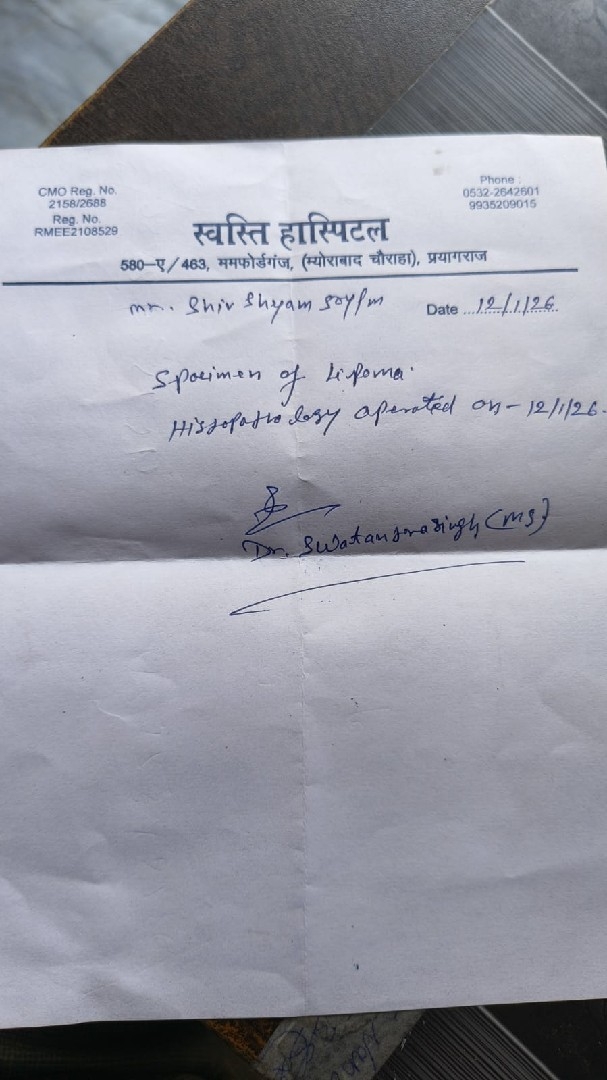 CMO Reg. No.
2158/2688
Reg. No.
RMEE2108529
Phone :
0532-2642601
9935209015
स्वस्ति हास्पिटल
580-ए/463, ममफोर्डगंज, (म्योराबाद चौराहा), प्रयागराज
mr. Shiv Shyam 50y/m
Date 12/1/26
Specimen of Lipoma.
Histopathology operated on - 12/1/26.
Dr. (MS)